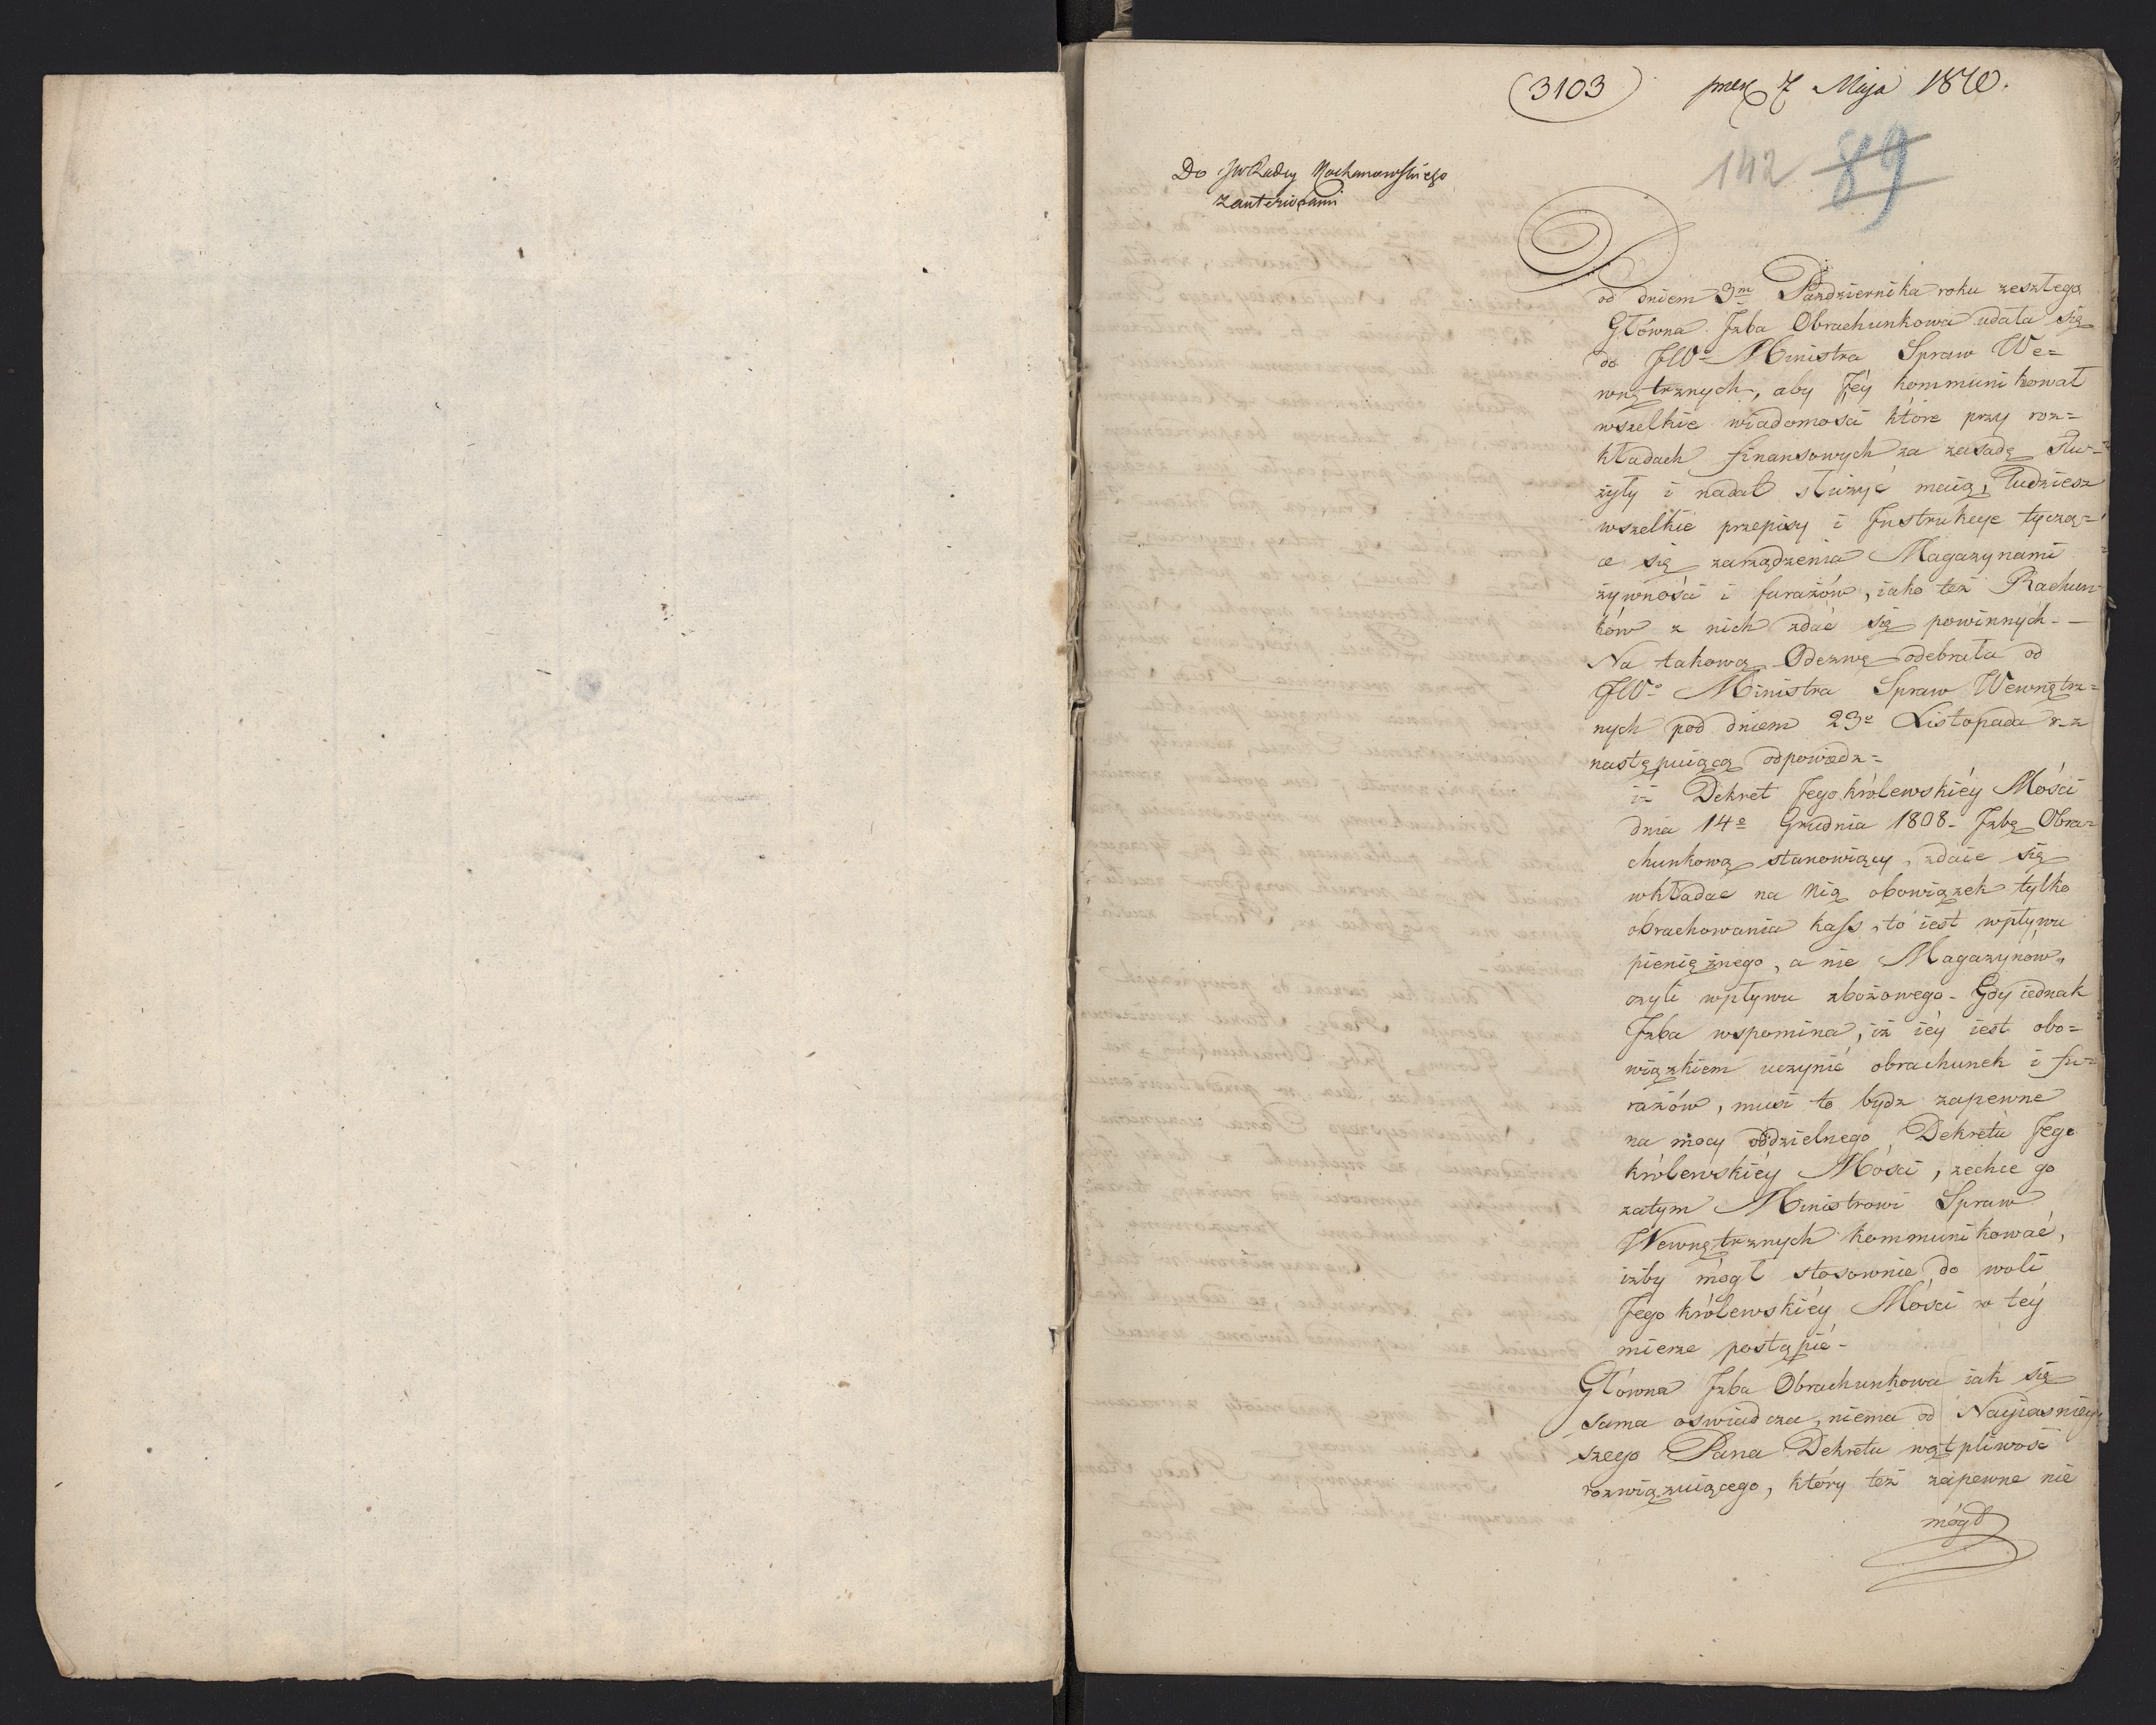 (3103) prez 7 Maja 1810.
142 89
Do JW Radcy Kochanowskiego
z anteriorami
Pod dniem 3m Pazdziernika roku zeszłego
Główna Jzba Obrachunkowa udała się
do JWo Ministra Spraw We=
wnętrznych, aby Jéy kommunikował
wszelkie wiadomosci które przy roz=
kładach finansowych za zasadę słu=
żyły i nadal służyć maią, tudziesz
wszelkie przepisy i Jnstrukcye tyczą=
ce się zarządzenia Magazynami
żywności i furażów, iako też Rachun
ków z nich zdać się powinnych. —
Na takową Odezwę odebrała od
JWo Ministra Spraw Wewnętrz=
nych pod dniem 29o Listopada r. z
następuiącą odpowiedz=
iż Dekret Jego królewskiéy Mości
dnia 14o Grudnia 1808. Jzbę Obra=
chunkową stanowiący, zdaie się
wkładac na Nią obowiązek tylko
obrachowania kass, to iest wpływu
pieniężnego, a nie Magazynów,
czyli wpływu zbożowego. Gdy iednak
Jzba wspomina, iż iéy iest obo=
wiązkiem uczynić obrachunek i fu=
rażów, musi to bydz zapewne
na mocy oddzielnego Dekretu Jego
królewskiéy Mósci, zechce go
zatym Ministrowi Spraw
Wewnętrznych kommunikować,
iżby mógł stosownie do woli
Jego królewskiéy Mósci w téy
mierze postąpić.
Główna Jzba Obrachunkowa iak się
sama oswiadcza, niema od Nayiasniéy
szego Pana Dekretu wątpliwość
rozwiązuiącego, który też zapewne nie
mógł